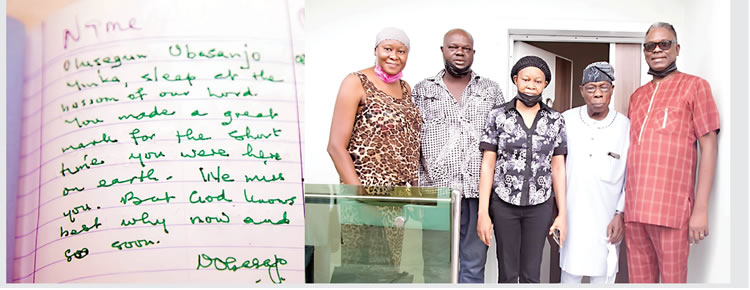 Name
Olusegun Obasanjo
Yinka, sleep at the
bossom of our Lord.
You made a great
mark for the short
time you were here
on earth. We miss
you. But God knows
best why now and
so soon.